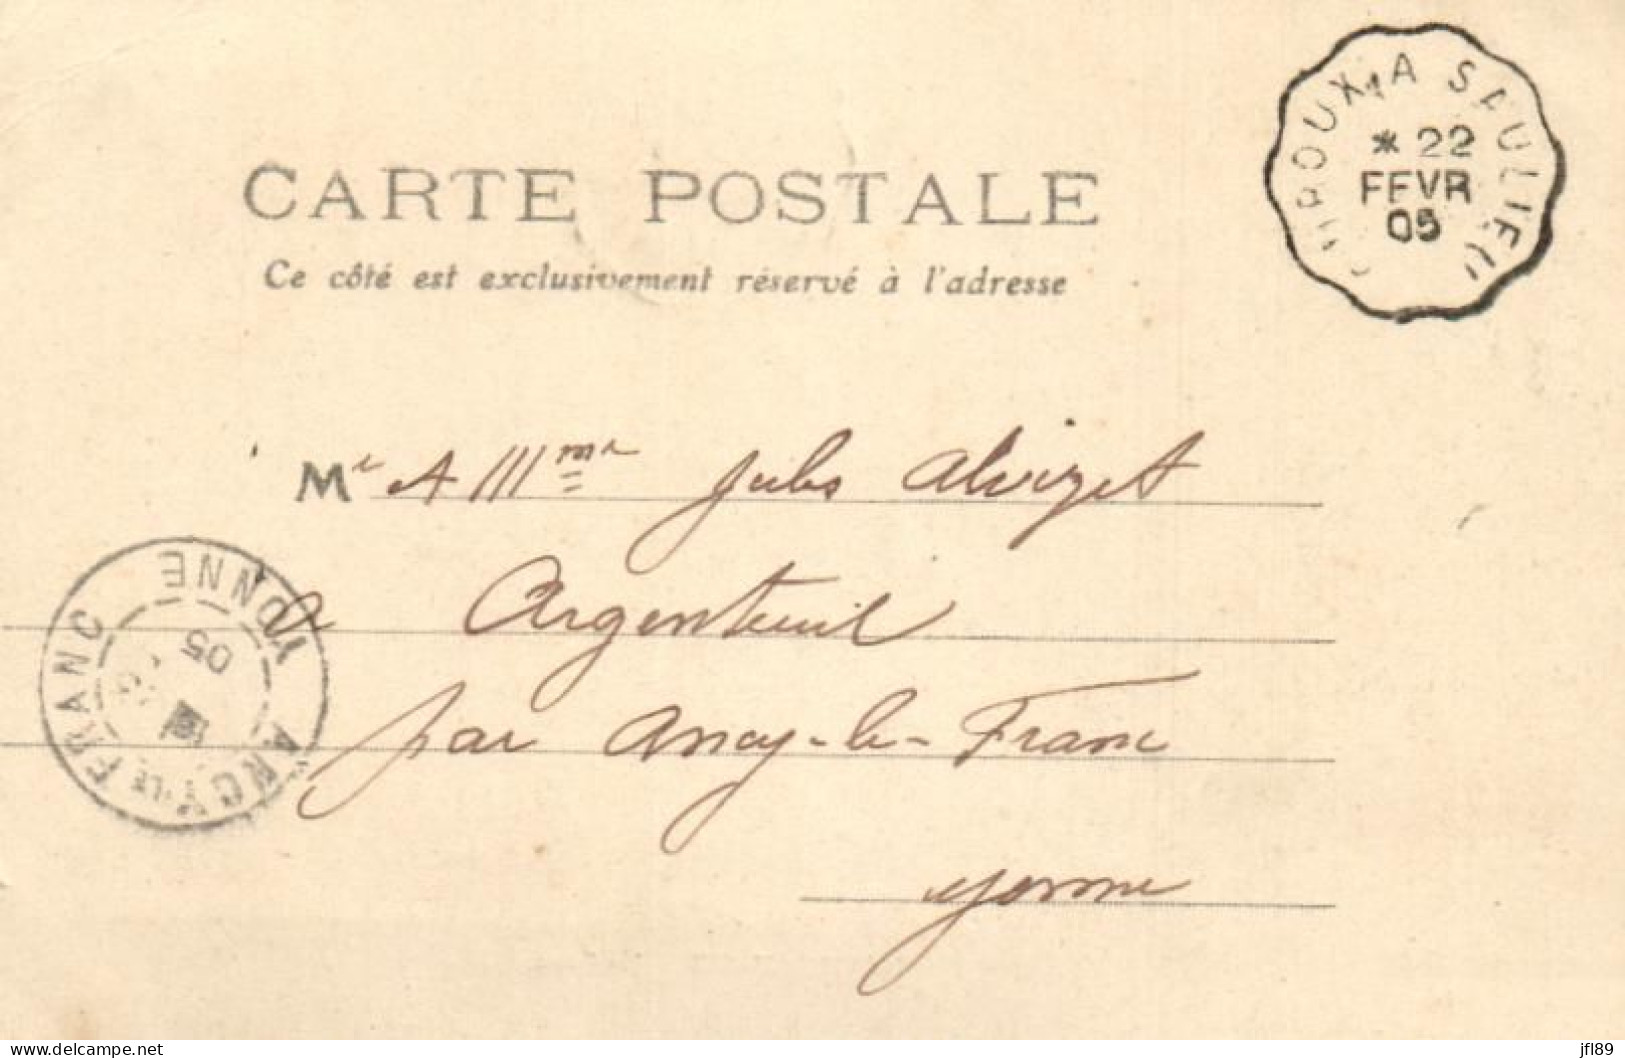 CARTE POSTALE
Ce côté est exclusivement réservé à l'adresse
A SAULIEU
* 22
FEVR
05
Mr & Mme Jules Alvizet
à Argenteuil
par Ancy-le-Franc
Yonne
ANCY-LE FRANC
YONNE
05
jfl89